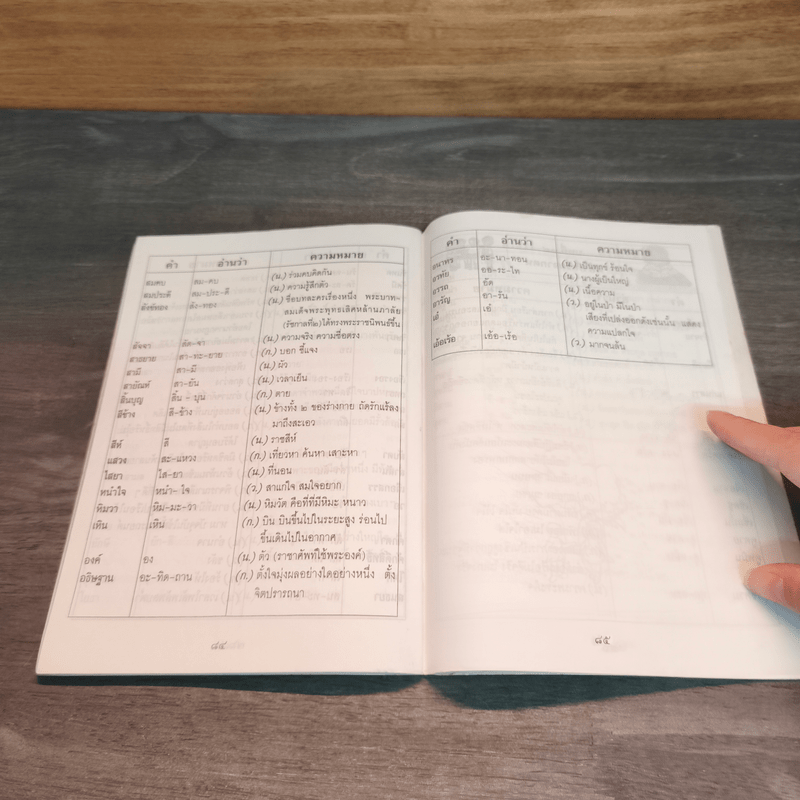 คำ อ่านว่า ความหมาย
สมคบ สม-คบ (น.) ร่วมคบคิดกัน
สมประดี สม-ประ-ดี (น.) ความรู้สึกตัว
สังข์ทอง สัง-ทอง (น.) ชื่อบทละครเรื่องหนึ่ง พระบาท-
สมเด็จพระพุทธเลิศหล้านภาลัย
(รัชกาลที่๒)ได้ทรงพระราชนิพนธ์ขึ้น
สัจจา สัด-จา (น.) ความจริง ความซื่อตรง
สาธยาย สา-ทะ-ยาย (ก.) บอก ชี้แจง
สามี สา-มี (น.) ผัว
สายัณห์ สา-ยัน (น.) เวลาเย็น
สิ้นบุญ สิ้น - บุน (ก.) ตาย
สีข้าง สี-ข้าง (น.) ข้างทั้ง ๒ ของร่างกาย ถัดรักแร้ลง
มาถึงสะเอว
สีห์ สี (น.) ราชสีห์
แสวง สะ-แหวง (ก.) เที่ยวหา ค้นหา เสาะหา
ไสยา ไส-ยา (น.) ที่นอน
หนำใจ หนำ-ใจ (ว.) สาแก่ใจ สมใจอยาก
หิมวา หิม-มะ-วา (น.) หิมวัต คือที่ที่มีหิมะ หนาว
เหิน เหิน (ก.) บิน บินขึ้นไปในระยะสูง ร่อนไป
ขึ้นเดินไปในอากาศ
องค์ อง (น.) ตัว (ราชาศัพท์ใช้พระองค์)
อธิษฐาน อะ-ทิด-ถาน (ก.) ตั้งใจมุ่งผลอย่างใดอย่างหนึ่ง ตั้ง
จิตปรารถนา
๘๔
คำ อ่านว่า ความหมาย
อนาทร อะ-นา-ทอน (น.) เป็นทุกข์ ร้อนใจ
อรทัย ออ-ระ-ไท (น.) นางผู้เป็นใหญ่
อรรถ อัด (น.) เนื้อความ
อารัญ อา-รัน (ว.) อยู่ในป่า มีในป่า
เอ๋ เอ๋ เสียงที่เปล่งออกดังเช่นนั้น แสดง
ความแปลกใจ
เอ้อเร้อ เอ้อ-เร้อ (ว.) มากจนล้น
๘๕